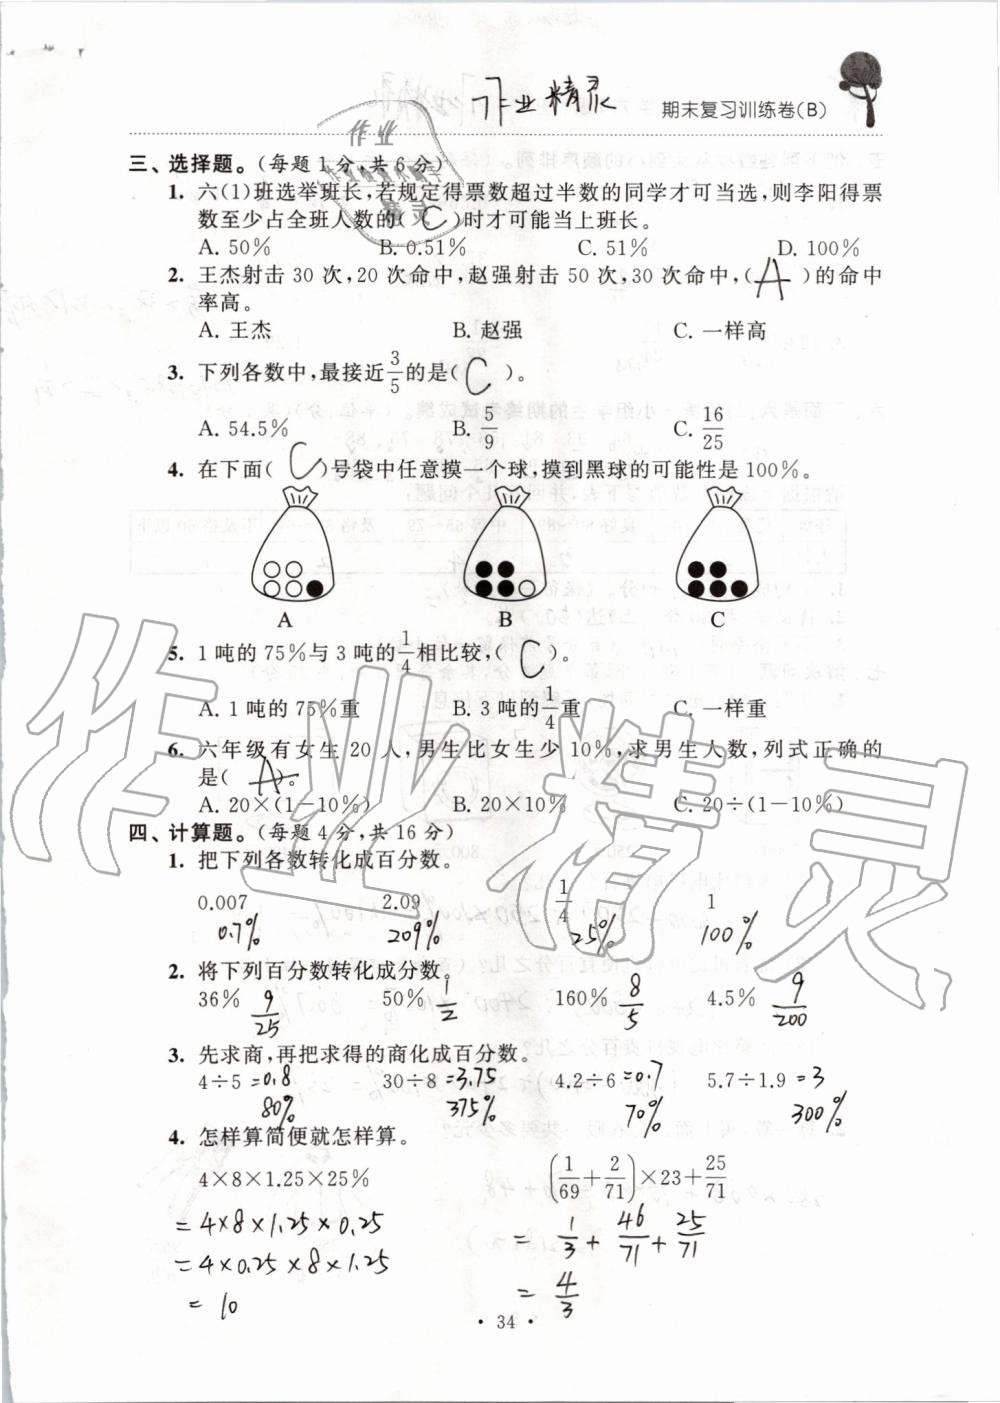 作业精灵
期末复习训练卷(B)
三、选择题。(每题 1 分,共 6 分)
1. 六(1)班选举班长,若规定得票数超过半数的同学才可当选,则李阳得票
数至少占全班人数的( C )时才可能当上班长。
A. 50% B. 0.51% C. 51% D. 100%
2. 王杰射击 30 次,20 次命中,赵强射击 50 次,30 次命中,( A )的命中
率高。
A. 王杰 B. 赵强 C. 一样高
3. 下列各数中,最接近3/5的是( C )。
A. 54.5% B. 5/9 C. 16/25
4. 在下面( C )号袋中任意摸一个球,摸到黑球的可能性是 100%。
A B C
5. 1 吨的 75%与 3 吨的1/4相比较,( C )。
A. 1 吨的 75%重 B. 3 吨的1/4重 C. 一样重
6. 六年级有女生 20 人,男生比女生少 10%,求男生人数,列式正确的
是( A )。
A. 20×(1-10%) B. 20×10% C. 20÷(1-10%)
四、计算题。(每题 4 分,共 16 分)
1. 把下列各数转化成百分数。
0.007 2.09 1/4 1
0.7% 209% 25% 100%
2. 将下列百分数转化成分数。
36% 9/25 50% 1/2 160% 8/5 4.5% 9/200
3. 先求商,再把求得的商化成百分数。
4÷5 =0.8 30÷8 =3.75 4.2÷6 =0.7 5.7÷1.9 =3
80% 375% 70% 300%
4. 怎样算简便就怎样算。
4×8×1.25×25% (1/69+2/71)×23+25/71
=4×8×1.25×0.25 =1/3+46/71+25/71
=4×0.25×8×1.25
=10 =4/3
· 34 ·
作业精灵